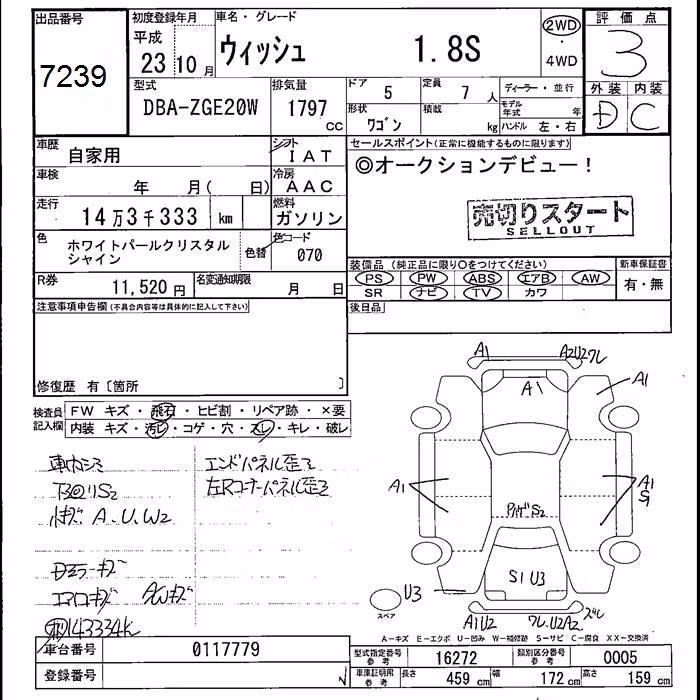 出品番号
7239
初度登録年月
平成
23 10 月
車名・グレード
ウィッシュ 1.8S
2WD
・
4WD
評価点
3
外装 内装
D C
型式
DBA-ZGE20W
排気量
1797
cc
ドア
5
定員
7 人
形状
ワゴン
積載
kg
ディーラー・並行
モデル年式 年
ハンドル 左・右
車歴
自家用
シフト
IAT
車検
年 月( 日)
冷房
AAC
走行
14万3千333 km
燃料
ガソリン
色
ホワイトパールクリスタル
シャイン
色替
色コード
070
R券
11,520 円
名変通知期限
月 日
セールスポイント(正常に機能するものに限ります)
◎オークションデビュー!
売切りスタート
SELLOUT
装備品(純正品に限り○をつけてください)
PS PW ABS エアB AW
SR ナビ TV カワ
新車保証書
有・無
後日品
注意事項申告欄(不具合内容等は具体的に記入して下さい)
修復歴 有〔箇所 〕
検査員
記入欄
FW キズ・飛石・ヒビ割・リペア跡・×要
内装 キズ・汚レ・コゲ・穴・スレ・キレ・破レ
下回りS2
A.U.W2
Dミラーキズ
エアロキズ AWキズ
143334K
エンドパネル歪ミ
左Rコーナーパネル歪ミ
A1
A2U2ワレ
A1
A1
A1
A1
S1
S2
S1 U3
U3
スペア
A1U2
ワレ.U2A2 ズレ
A-キズ E-エクボ U-凹み W-補修跡 S-サビ C-腐食 XX-交換済
車台番号
0117779
登録番号
型式指定番号
参考
16272
類別区分番号
参考
0005
車庫証明用
参考
長さ
459 cm
幅
172 cm
高さ
159 cm